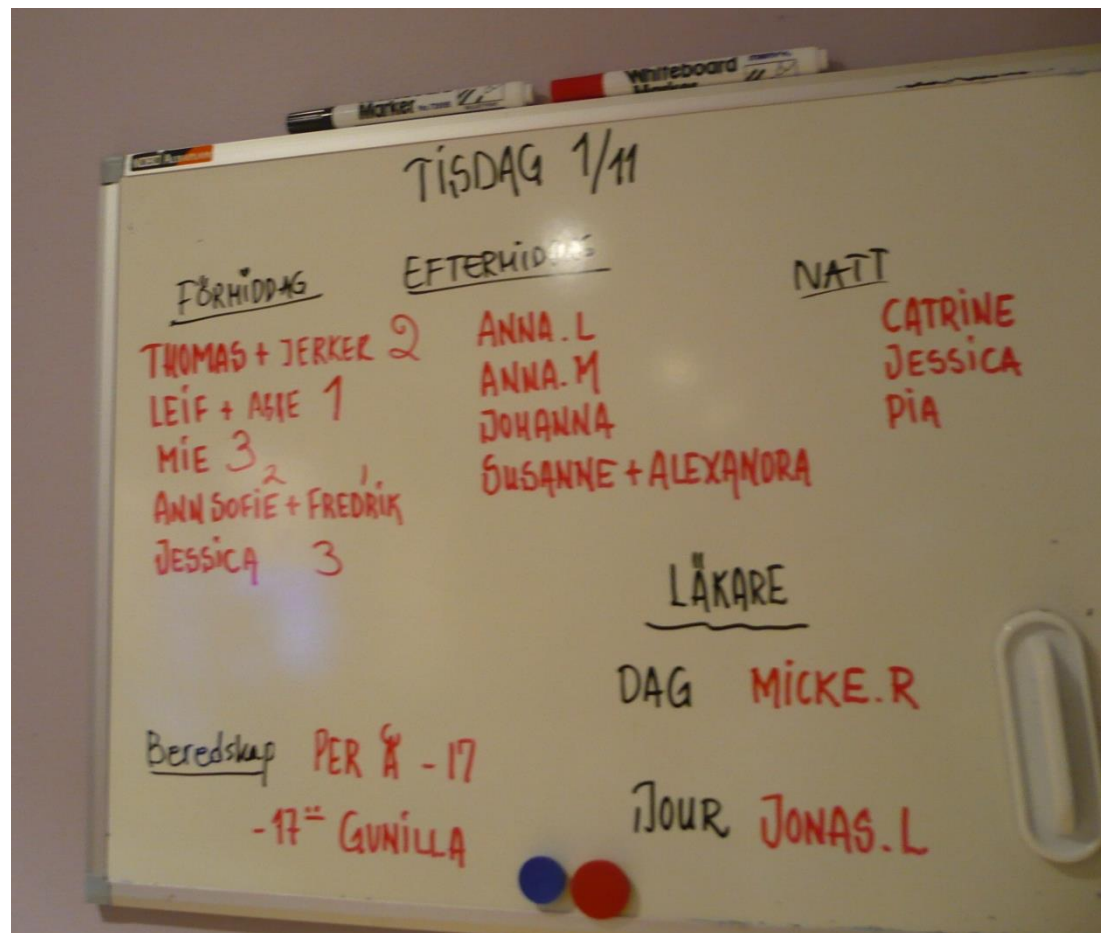 Marker
Whiteboard
Marker
TISDAG 1/11
FÖRMIDDAG
THOMAS + JERKER 2
LEIF + ASIE 1
MIE 3
2 1
ANN SOFIE + FREDRIK
JESSICA 3
EFTERMIDDAG
ANNA.L
ANNA.M
JOHANNA
SUSANNE + ALEXANDRA
NATT
CATRINE
JESSICA
PIA
LÄKARE
DAG MICKE.R
JOUR JONAS.L
Beredskap PER - 17
- 17 GUNILLA